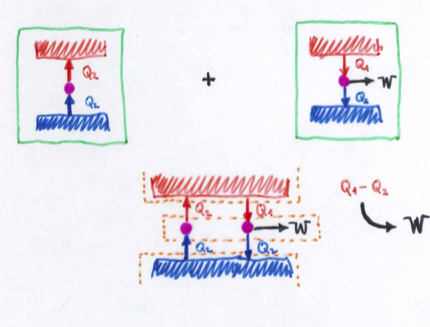 Q₂
Q₂
+
Q₁
W
Q₂
Q₂
Q₁
W
Q₂
Q₂
Q₁-Q₂
W